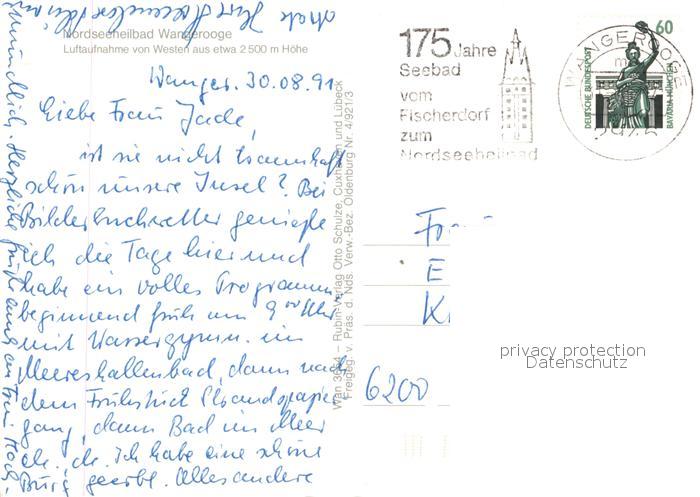 Nordseeheilbad Wangerooge
Luftaufnahme von Westen aus etwa 2 500 m Höhe
Wanger. 30.08.91
Liebe Frau Jade,
ist sie nicht traumhaft
schön unsere Insel? Bei
Bilderbuchwetter genieße
ich die Tage hier und
habe ein volles Programm
beginnend früh um 9 00 Uhr
mit Wassergymn. im
Meereshallenbad, dann nach
dem Frühstück Strandspazier
gang, dann Bad im Meer
etc., etc. Ich habe eine schöne
Burg geerbt. Alles andere
mündlich. Herzliche
Wan 3664 – Rubin-Verlag Otto Schulze, Cuxhaven und Lübeck
Freigeg. v. Präs. d. Nds. Verw.-Bez. Oldenburg Nr. 4/921/3
175 Jahre
Seebad
vom
Fischerdorf
zum
Nordseeheilbad
WANGEROOGE
60
DEUTSCHE BUNDESPOST
BAVARIA MÜNCHEN
E
K
6200
privacy protection
Datenschutz